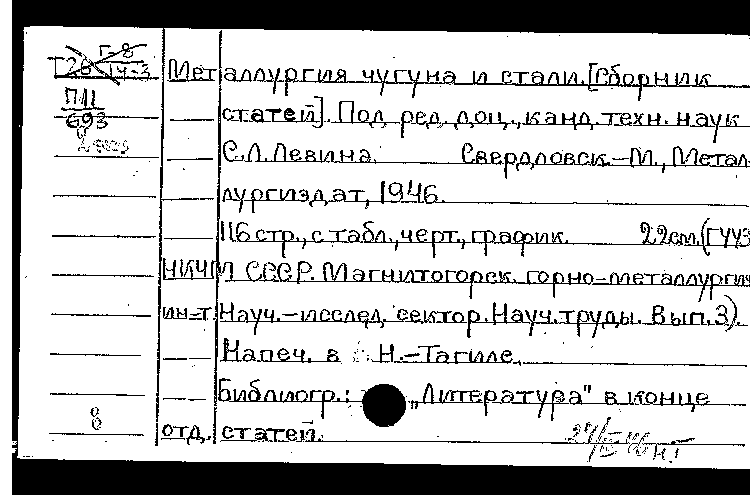 Г-8
Т26 14-3
П11
693
Металлургия чугуна и стали. [Сборник
статей]. Под ред. доц., канд. техн. наук
С.Л. Левина. Свердловск.-М., Метал-
лургиздат, 1946.
116 стр., с табл., черт., график. 22см. (ГУУЗ
НКЧМ СССР. Магнитогорск. горно-металлургич
ин-т. Науч.-исслед. сектор. Науч. труды. Вып. 3).
Напеч. в Н.-Тагиле.
Библиогр.: "Литература" в конце
8 отд. статей.